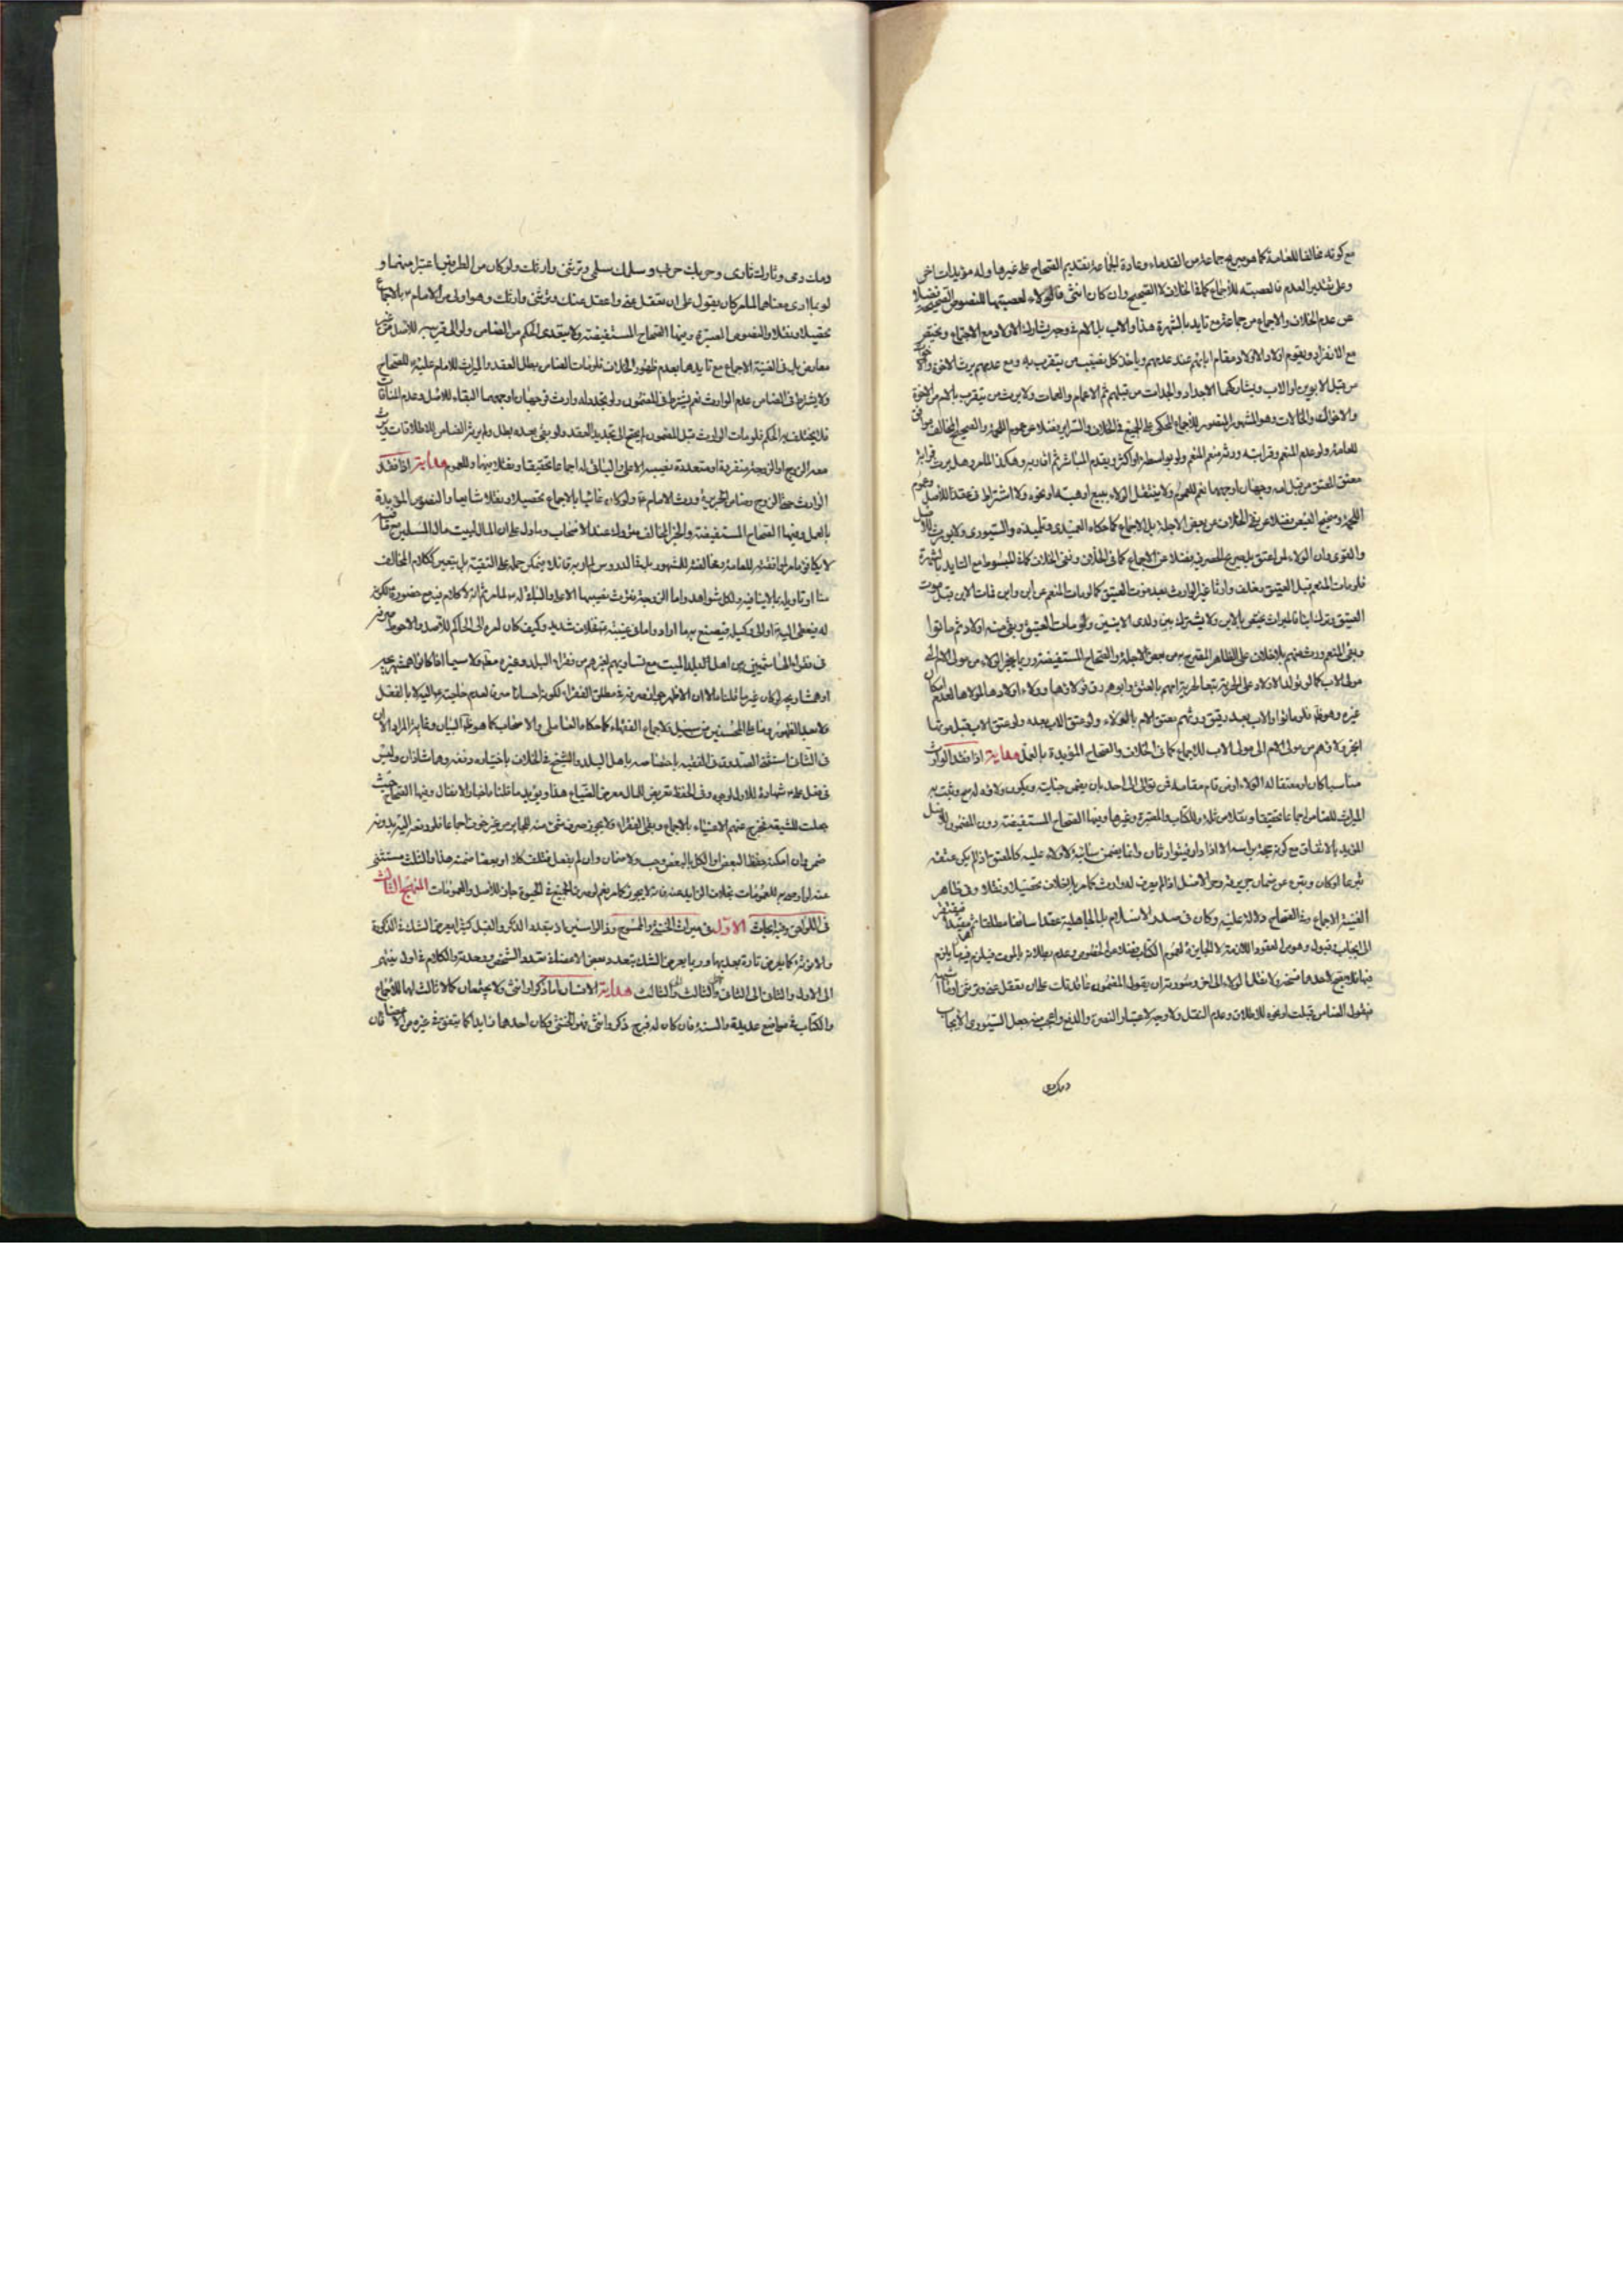 مع كونه مخالفا للعامة كما هو صريح جماعة من القدماء وعادة الجماعة تقديم الصحاح على غيرها وله مؤيدات اخرى
وعلى تقدير العدم فالعصبته للأجماع كما فى الخلاف لا الصحيح وان كان انثى فالولاء لعصبتها للنصوص الصحيحة فضلا
عن عدم الخلاف والاجماع من جماعة مع تايد بالشهرة هذا والاب بل الام وجه يشارك الاولاد مع الاجتماع
مع الانفراد ويقوم اولاد الاولاد مقام ابائهم عند عدمهم وياخذ كل نصيب من يتقرب به ومع عدمهم يرث الاخوة
من قبل الابوين او الاب ويشاركهما الاجداد والجدات من قبلهم ثم الاعمام والعمات ولا يرث من يتقرب بالام من الاخوة
والاخوال والخالات وهو المشهور المنصور للأجماع المحكى على الجميع فى الخلاف والسراير فضلا عن عموم اللحمة والصحيح المخالف
للعامة ولو عدم المنعم وقرابته ورث منعم المنعم ولو بواسطة او اكثر ويقدم المباشر ثم اقاربه وهكذا وهل يرث قرابة
معتق المعتق من قبل امه وجهان اوجههما نعم للعموم ولا ينتقل الولاء ببيع او هبة او نحوه ولا اشتراط فى عقد للأصل وعموم
اللحمة وصحيح العيص فضلا عن نفى الخلاف من بعض الاجلة بل الاجماع كما حكاه العميدى وتلميذه والسيورى ولا يورث للأصل
والفتوى وان الولاء لمن اعتق بل صريح المصرى فضلا عن الاجماع كما فى الخلاف ونفى الخلاف كما فى المبسوط مع التايد بالشهرة
فلو مات المنعم قبل العتيق وخلف وارثا غير الوارث بعد موت العتيق كما لو مات المنعم عن ابن وابن فات الابن قبل موت
العتيق وترك ابنا فالميراث يختص بالابن ولا يشترك بين ولدى الابنين ولو مات العتيق وبقى منه اولاد ثم ماتوا
وبقى المنعم ورث منهم بلا خلاف على الظاهر المصرح به من بعض الاجلة والصحاح المستفيضة وربما ينجر الولاء من مولى الام الى
مولى الاب كما لو تولد الاولاد على الحرية تبعا لحرية امهم بالعتق وابوهم رق فولائها وولاء اولادها لمولاها لعدم امكان
غيره وهو فلو ماتوا والاب بعد رقيق ورثهم معتق الام بالولاء ولو عتق الاب بعده ولو عتق الاب قبل موتها
انجر ولائهم من مولى الام الى مولى الاب للأجماع كما فى الخلاف والصحاح المؤيدة بالعمل هداية اذا فقد الوارث
مناسبا كان او معتقا له الولاء او من قام مقامه فمن توالى الى احد بان يضمن جنايته ويكون ولائه له صح وثبت به
الميراث للضامن اجماعا تحقيقا ونقلا من ثلة وللكتاب والمعتبرة وغيرها وفيها الصحاح المستفيضة دون المضمون للأصل
المؤيد بالاتفاق مع كونه عقد براسه الا اذا دار فيتوارثان وانما يضمن سائبة لا ولاء عليه كالمعتق اذا لم يكن عتقه
تبرعا او كان وتبرء عن ضمان جريرته وحر الاصل اذا لم يعرف له وارث كما مر بلا خلاف تحصيلا ونقلا وفى ظاهر
الغنية الاجماع وفى الصحاح دلالة عليه وكان فى صدر الاسلام بل الجاهلية عقدا سائغا مطلقا ثم مقيدا فيفتقر
الى ايجاب وقبول وهو من العقود اللازمة لا الجايزة لعموم الكتاب فضلا عن الخصوص وعدم بطلانه بالموت فيلزم فيها ما يلزم
فيها فلا يصح لاحدهما فسخه ولا نقل الولاء الى اخر وصورته ان يقول المضمون عاقدتك على ان تعقل عنى وترثنى
فيقول الضامن قبلت او نحوه للاطلاق وعدم النقل ولا وجه لاعتبار النصرة والدفع واعجب منه جعل السيورى الايجاب
دمك دمى
دمك دمى وثارك ثارى وحربك حربى وسلمك سلمى وترثنى وارثك ولو كان من الطرفين اعتبر منهما و
لو بما ادى معناها لما مر كان يقول على ان تعقل عنى واعقل عنك وترثنى وارثك وهو اولى من الامام ع بالاجماع
تحصيلا ونقلا والنصوص المعتبرة وفيها الصحاح المستفيضة ولا يتعدى الحكم من الضامن ولو الى قريبه للأصل من غير
معارض بل فى الغنية الاجماع مع تايدها بعدم ظهور الخلاف فلو مات الضامن بطل العقد والميراث للامام عليه للصحاح
ولا يشترط فى الضامن عدم الوارث نعم يشترط فى المضمون ولو تجدد له وارث فوجهان اوجههما البقاء للأصل وعدم المنافات
فلا يختلف به الحكم فلو مات الوارث قبل المضمون لم يحتج الى تجديد العقد ولو بقى بعده بطل ولم يرث الضامن للاطلاقات ويرث
معه الزوج او الزوجة منفردة او متعددة نصيبه الاعلى والباقى له اجماعا تحقيقا ونقلا فيهما وللعموم هداية اذا فقد
الوارث حتى الزوج وضامن الجريرة ورث الامام ع ولو كان غائبا بالاجماع تحصيلا ونقلا شايعا والنصوص المؤيدة
بالعمل وفيها الصحاح المستفيضة والخبر المخالف مؤول عند الاصحاب وما دل على ان المال لبيت مال المسلمين مع
لا يكافى ما مر لموافقته للعامة ومخالفته للشهور بل فى الدروس لم ار به قائلا يمكن حمله على التقية بل يتعين ككلام المخالف
منا او تاويله بما لا ينافيه ولكل شواهد واما الزوجة فترث نصيبها الاعلى والباقى له ع لما مر ثم انه لا كلام فيه مع حضوره لكونه
له فيعطى اليه او الى وكيله فيصنع به ما اراد واما فى غيبته فيه خلاف شديد وكيف كان امره الى الحاكم للأصل والاحوط صرفه
فى فقراء الهاشميين من اهل بلد الميت مع تساويهم لغيرهم من فقراء البلد وغيره مطلقا ولا سيما اذا كانوا همشهريجه
او همشاريجه ولو كان غير ما قلنا مالا الا ان الاظهر جواز صرفه فى مطلق الفقراء لكونه احسانا صرفا لعدم حاجته ع اليه لا بالفعل
ولا بعد الظهور وما على المحسنين من سبيل ولاجماع الفقهاء كما حكاه الفاضلى والاصحاب كما هو ظاهر البيان وغاية المراد الا ان
فى الثانى استثنى الصدوق فى الفقيه باختصاصه باهل البلد والشيخ فى الخلاف باختياره دفنه وهما شاذان وليس
فى فعل على ع شهادة للاول لوجه وفى الحفظ تعريض المال معرض الضياع هذا ويؤيد ما قلنا ما اخبار الانفال وفيها الصحاح حيث
جعلت للشيعة فخرج عنهم الاغنياء بالاجماع وبقى الفقراء ولا يجوز صرف شئ منه للجاير من غير خوف اجماعا فلو دفعه اليه بدونه
ضمن وان امكنه حفظ البعض او الكل بالبعض وجب ولا ضمان وان لم يفعل فتلف كلا او بعضا ضمنه هذا والثلث مستثنى
عنه لو اوصى به للعمومات بخلاف الزايد عنه فانه لا يجوز كما مر نعم لو صرف الجميع فى الحيوة جاز للأصل والعمومات المنهج الثالث
فى اللواحق وفيه ابحاث الاول فى ميراث الخنثى والممسوح وذى الراسين اذ بتعدد الذكر والقبل كثيرا ما يعرض الشك فى الذكورة
والانوثة كما يعرض تارة بعدمها وربما يعرض الشك بتعدد بعض الاعضاء فى تعدد الشخص ووحدته والكلام فى اول
الى الاول والثانى الى الثانى والثالث والثالث هداية الانسان اما ذكر او انثى ولا يجتمعان كما لا ثالث لهما للأجماع
والكتاب فى مواضع عديدة والسنة فان كان له فرج ذكر وانثى فهو الخنثى وكان احدهما زايدا كما يتفق فى غيره من الاعضاء فان